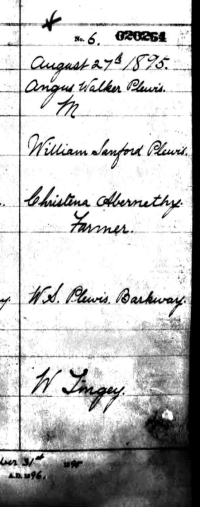 No. 6. 020264
August 27th 1895.
Angus Walker Plewis.
M
William Sanford Plewis.
Christina Abernethy.
Farmer.
W. S. Plewis. Barkway.
W Tingey.
31st 1895
A.D. 1896.